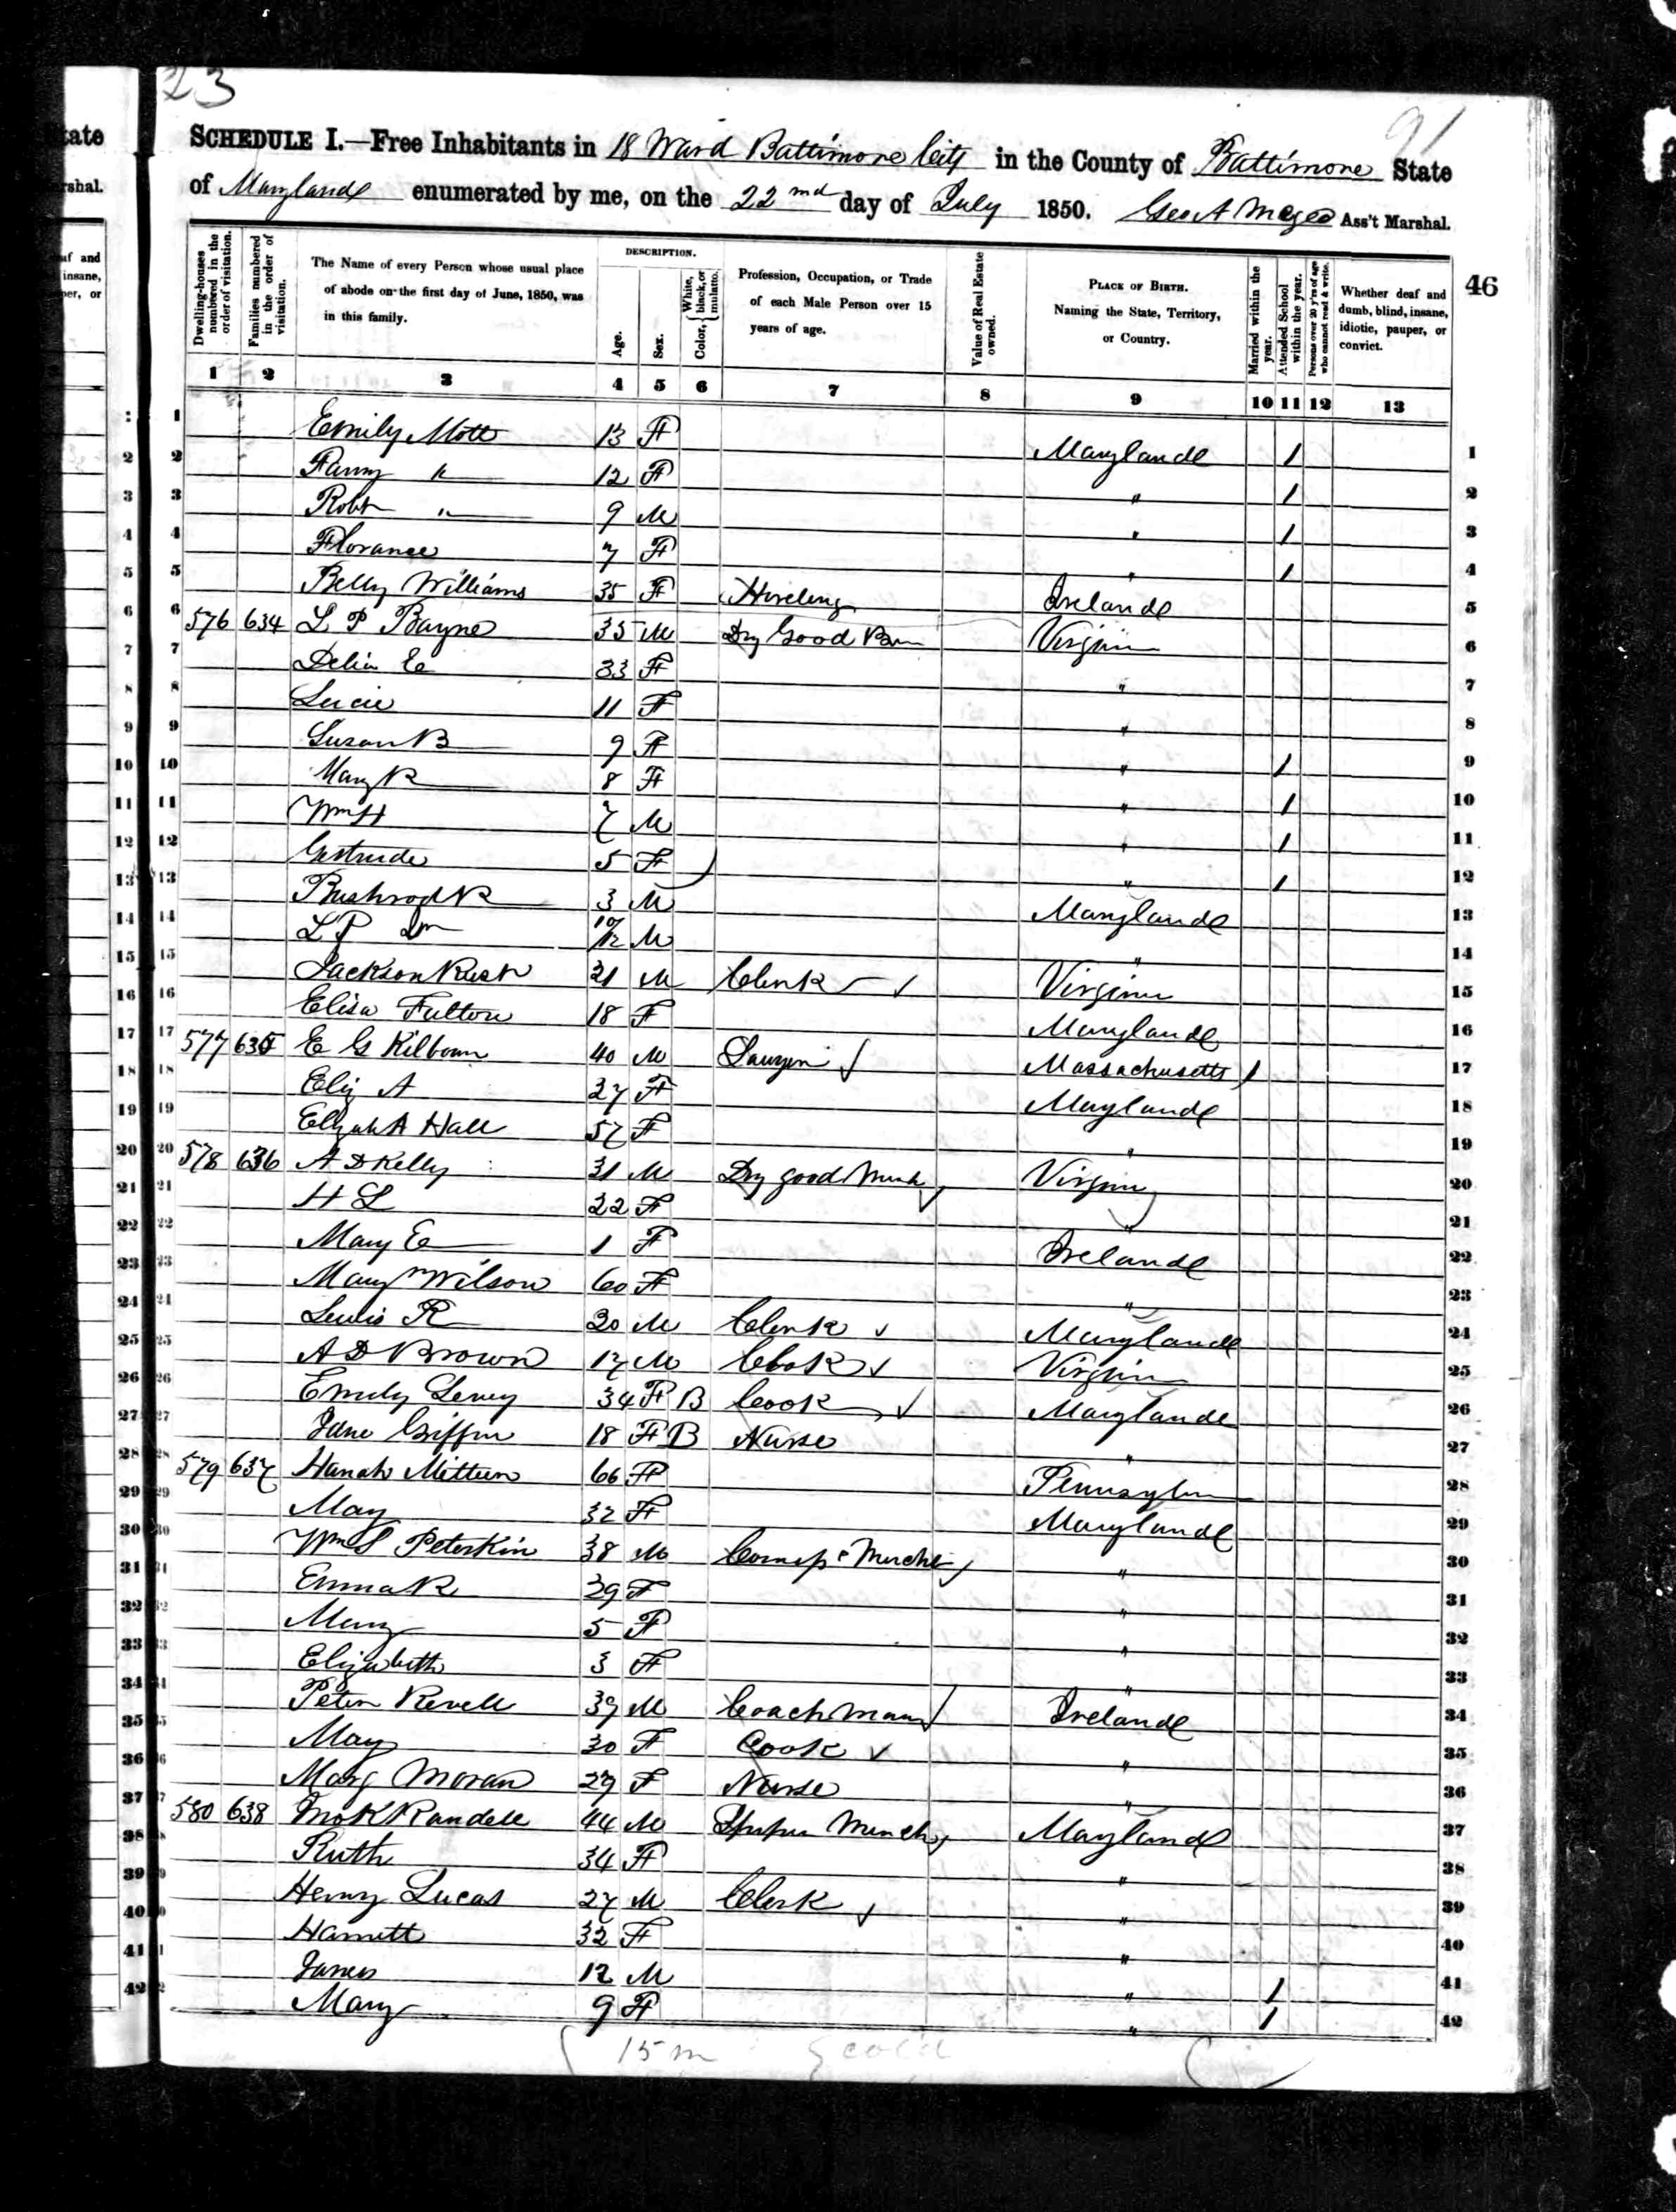 23
91
SCHEDULE I.—Free Inhabitants in 18 Ward Baltimore City in the County of Baltimore State
of Maryland enumerated by me, on the 22nd day of July 1850. Geo A Ass't Marshal.
46
Dwelling-houses numbered in the order of visitation.
Families numbered in the order of visitation.
The Name of every Person whose usual place of abode on the first day of June, 1850, was in this family.
DESCRIPTION.
Age.
Sex.
Color, { White, black, or mulatto.
Profession, Occupation, or Trade of each Male Person over 15 years of age.
Value of Real Estate owned.
PLACE OF BIRTH. Naming the State, Territory, or Country.
Married within the year.
Attended School within the year.
Persons over 20 y'rs of age who cannot read & write.
Whether deaf and dumb, blind, insane, idiotic, pauper, or convict.
1 2 3 4 5 6 7 8 9 10 11 12 13
1 Emily Mott 13 F Maryland 1 1
2 Fanny " 12 F " 1 2
3 Robt " 9 M " 1 3
4 Florance 7 F " 1 4
5 Belly Williams 35 F Hireling Ireland 5
6 576 634 L P Bayne 35 M Dry Good Virginia 6
7 Delia E 33 F " 7
8 Lucie 11 F " 8
9 Susan B 9 F " 1 9
10 Mary R 8 F " 1 10
11 Wm H 7 M " 1 11
12 Gertrude 5 F " 1 12
13 Bushrod R 3 M Maryland 13
14 L P 10/12 M " 14
15 Jackson Rust 21 M Clerk Virginia 15
16 Elisa Fulton 18 F Maryland 16
17 577 635 E G Kilbourn 40 M Lawyer Massachusetts 1 17
18 Eliz A 27 F Maryland 18
19 Elizabh A Hall 57 F " 19
20 578 636 A D Kelly 31 M Dry good Merch Virginia 20
21 H L 22 F " 21
22 Mary E 1 F Ireland 22
23 Mary Wilson 60 F " 23
24 Lewis R 20 M Clerk Maryland 24
25 A D Brown 17 M Clerk Virginia 25
26 Emily 34 F B Cook Maryland 26
27 Jane Griffin 18 F B Nurse " 27
28 579 637 Hanah 66 F Pennsylva 28
29 Mary 32 F Maryland 29
30 Wm S Peterkin 38 M Mercht " 30
31 Emma R 29 F " 31
32 Mary 5 F " 32
33 Elizabeth 3 F " 33
34 Peter Revell 39 M Coachman Ireland 34
35 Mary 30 F Cook " 35
36 Marg Moran 27 F Nurse " 36
37 580 638 Jno K Randall 44 M Merch Maryland 37
38 Ruth 34 F " 38
39 Henry Lucas 27 M Clerk " 39
40 Harriett 32 F " 40
41 James 12 M " 1 41
42 Mary 9 F " 1 42
15 m cold